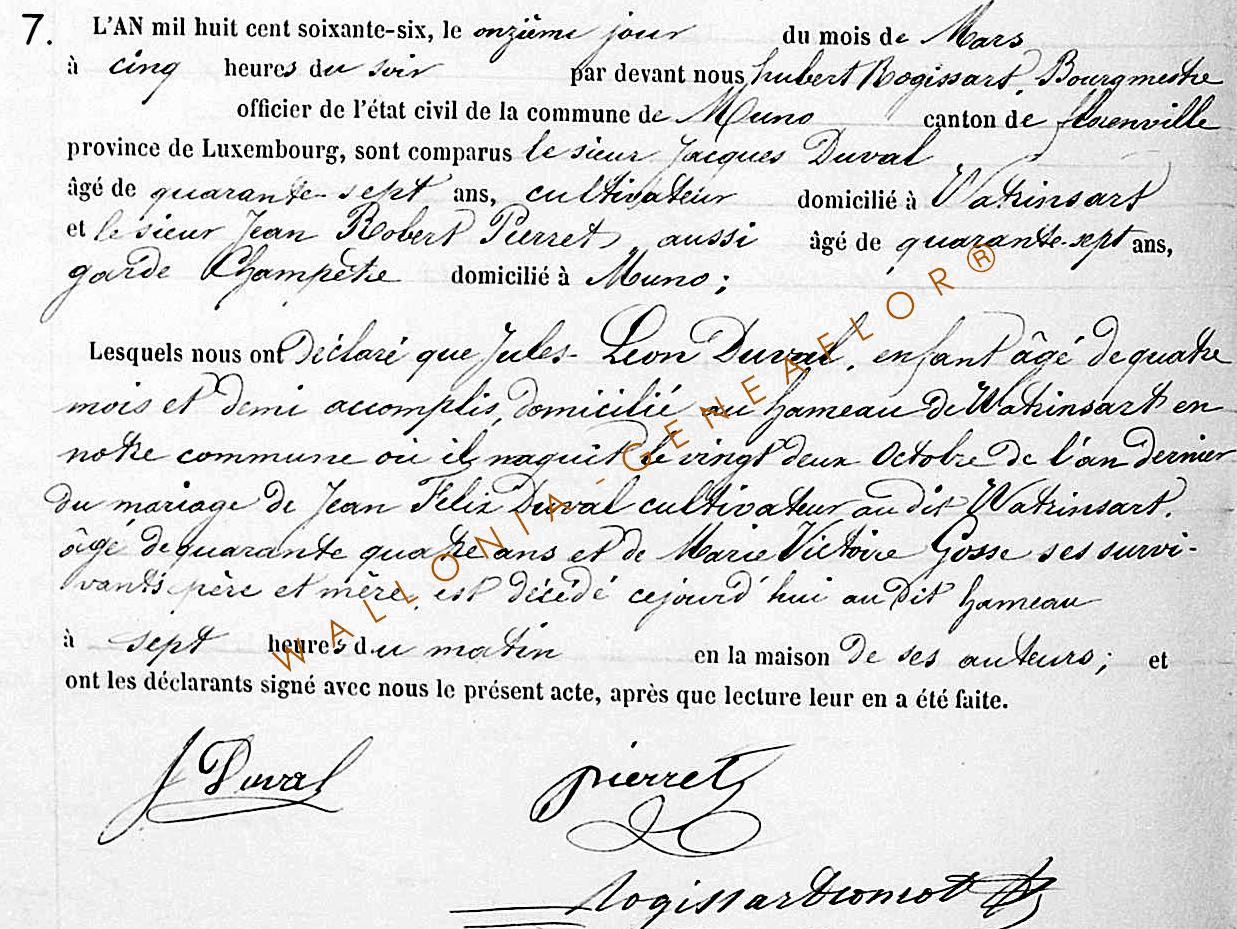 7. L'AN mil huit cent soixante-six, le onzième jour du mois de Mars
à cinq heures du soir par devant nous hubert Rogissart, Bourgmestre
officier de l'état civil de la commune de Muno canton de florenville
province de Luxembourg, sont comparus le sieur Jacques Duval
âgé de quarante-sept ans, cultivateur domicilié à Watrinsart
et le sieur Jean Robert Pierret, aussi âgé de quarante-sept ans,
garde Champêtre domicilié à Muno ;
Lesquels nous ont Déclaré que Jules-Léon Duval, enfant âgé de quatre
mois et demi accomplis, domicilié au hameau de Watrinsart en
notre commune où il naquit le vingt deux Octobre de l'an dernier
du mariage de Jean Félix Duval cultivateur au dit Watrinsart,
âgé de quarante quatre ans et de Marie Victoire Gosse ses survi-
vants père et mère, est décédé cejourd'hui au Dit hameau
à sept heures du matin en la maison de ses auteurs ; et
ont les déclarants signé avec nous le présent acte, après que lecture leur en a été faite.
J Duval pierret
WALLONIA-GENEAFLOR®